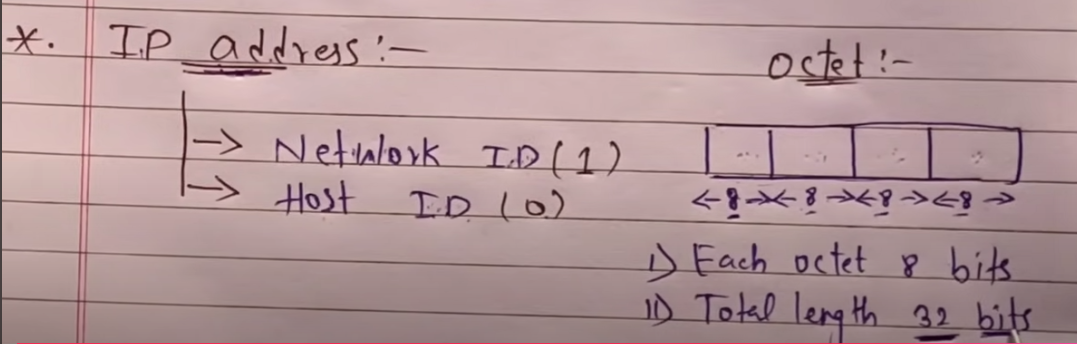 *. I.P address :-
→ Network I.D (1)
→ Host I.D (0)
Octet :-
←8→←8→←8→←8→
I) Each octet 8 bits
II) Total length 32 bits